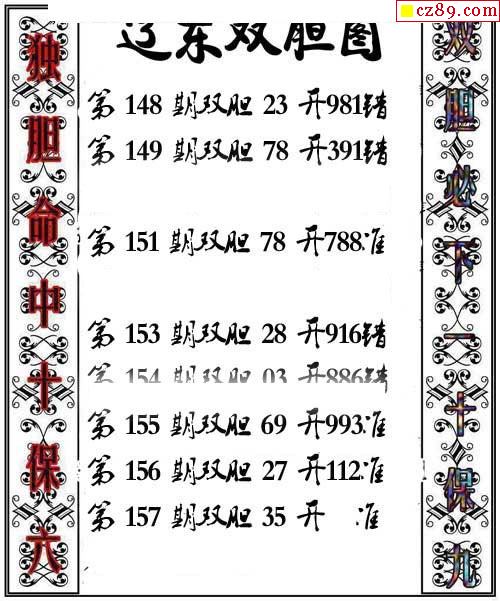 cz89.com
辽东双胆图
第 148 期双胆 23 开981错
第 149 期双胆 78 开391错
第 151 期双胆 78 开788准
第 153 期双胆 28 开916错
第 154 期双胆 03 开886错
第 155 期双胆 69 开993准
第 156 期双胆 27 开112准
第 157 期双胆 35 开 准
独胆命中十保六
双胆必下一十保九